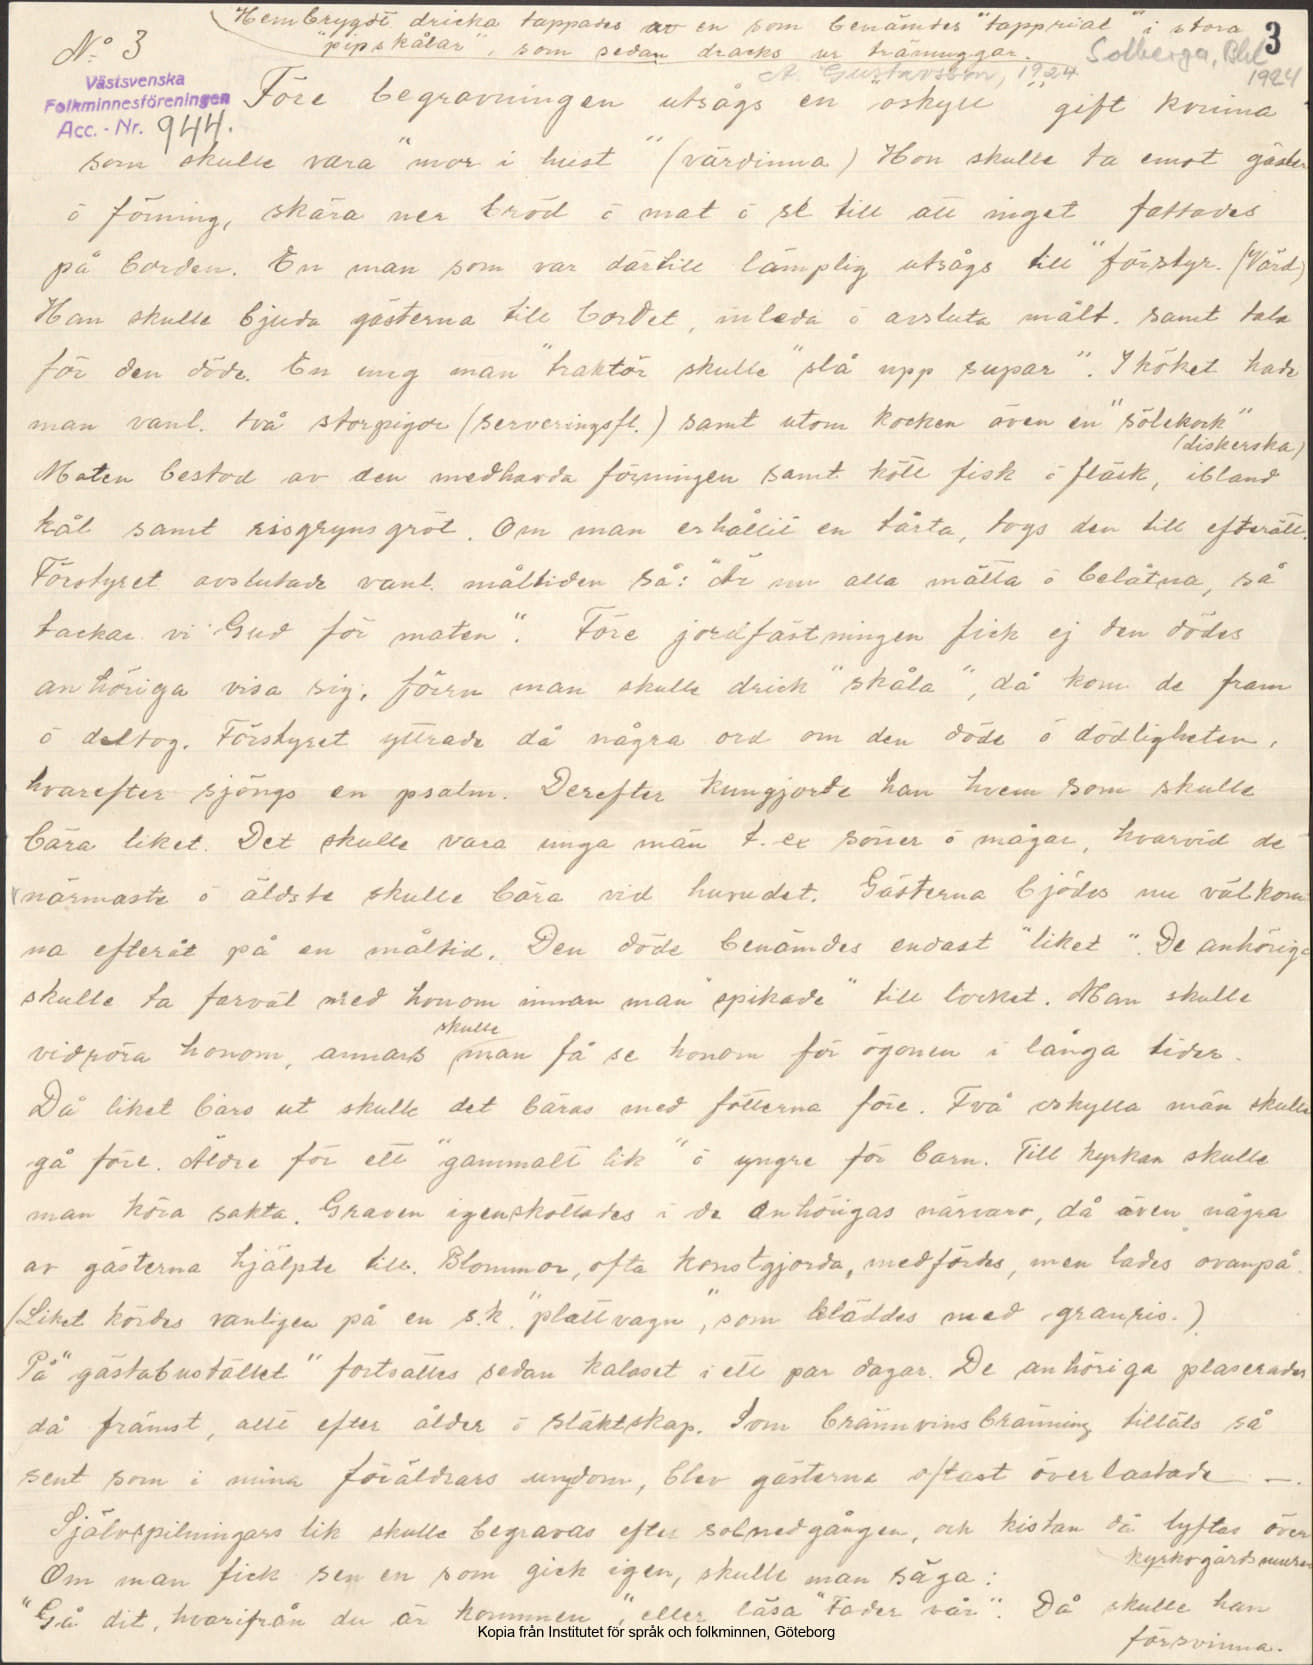 Hembrygdt dricka tappades av en som benämdes "tapprial" i stora
"pipskålar", som sedan dracks ur trämuggar.
No 3
3
Solberga, Bhl
1924
A. Gustavsson, 1924
Västsvenska
Folkminnesföreningen
Acc. - Nr. 944.
Före begravningen utsågs en "oskyll" gift kvinna
som skulle vara "mor i hust" (värdinna) Hon skulle ta emot gäster
ö förning, skära ner bröd ö mat ö se till att inget fattades
på borden. En man som var därtill lämplig utsågs till "förstyr. (Värd)
Han skulle bjuda gästerna till bordet, inleda ö avsluta målt. samt tala
för den döde. En ung man "traktör skulle "slå upp supar". I köket hade
man vanl. två storpigor (serveringsfl.) samt utom kocken även en "sölekock"
(diskerska)
Maten bestod av den medhavda förningen samt kött fisk ö fläsk, ibland
kål samt risgrynsgröt. Om man erhållit en tårta, togs den till efterätt.
Förstyret avslutade vanl. måltiden så: "Är nu alla mätta ö belåtna, så
tackar vi Gud för maten". Före jordfästningen fick ej den dödes
anhöriga visa sig, förrn man skulle drick "skåla", då kom de fram
ö deltog. Förstyret yttrade då några ord om den döde ö dödligheten,
hvarefter sjöngs en psalm. Derefter kungjorde han hvem som skulle
bära liket. Det skulle vara unga män t. ex söner ö mågar, hvarvid de
närmaste ö äldste skulle bära vid huvudet. Gästerna bjödes nu välkom-
na efteråt på en måltid. Den döde benämdes endast "liket". De anhöriga
skulle ta farväl med honom innan man "spikade" till locket. Man skulle
skulle
vidröra honom, annars man få se honom för ögonen i långa tider.
Då liket bars ut skulle det bäras med fötterna före. Två oskylla män skulle
gå före. Äldre för ett "gammalt lik" ö yngre för barn. Till kyrkan skulle
man köra sakta. Graven igenskottades i de anhörigas närvaro, då även några
av gästerna hjälpte till. Blommor, ofta konstgjorda, medfördes, men lades ovanpå.
(Liket kördes vanligen på en s.k. "plattvagn", som kläddes med granris.)
På "gästabustället" fortsattes sedan kalaset i ett par dagar. De anhöriga plaserades
då främst, allt efter ålder ö släktskap. Som brännvinsbränning tilläts så
sent som i mina föräldrars ungdom, blev gästerna oftast överlastade —.
Självspillningars lik skulle begravas efter solnedgången, och kistan då lyftas över
kyrkogårdsmuren
Om man fick sen en som gick igen, skulle man säga:
"Gå dit, hvarifrån du är kommen", eller läsa "Fader vår". Då skulle han
försvinna.
Kopia från Institutet för språk och folkminnen, Göteborg